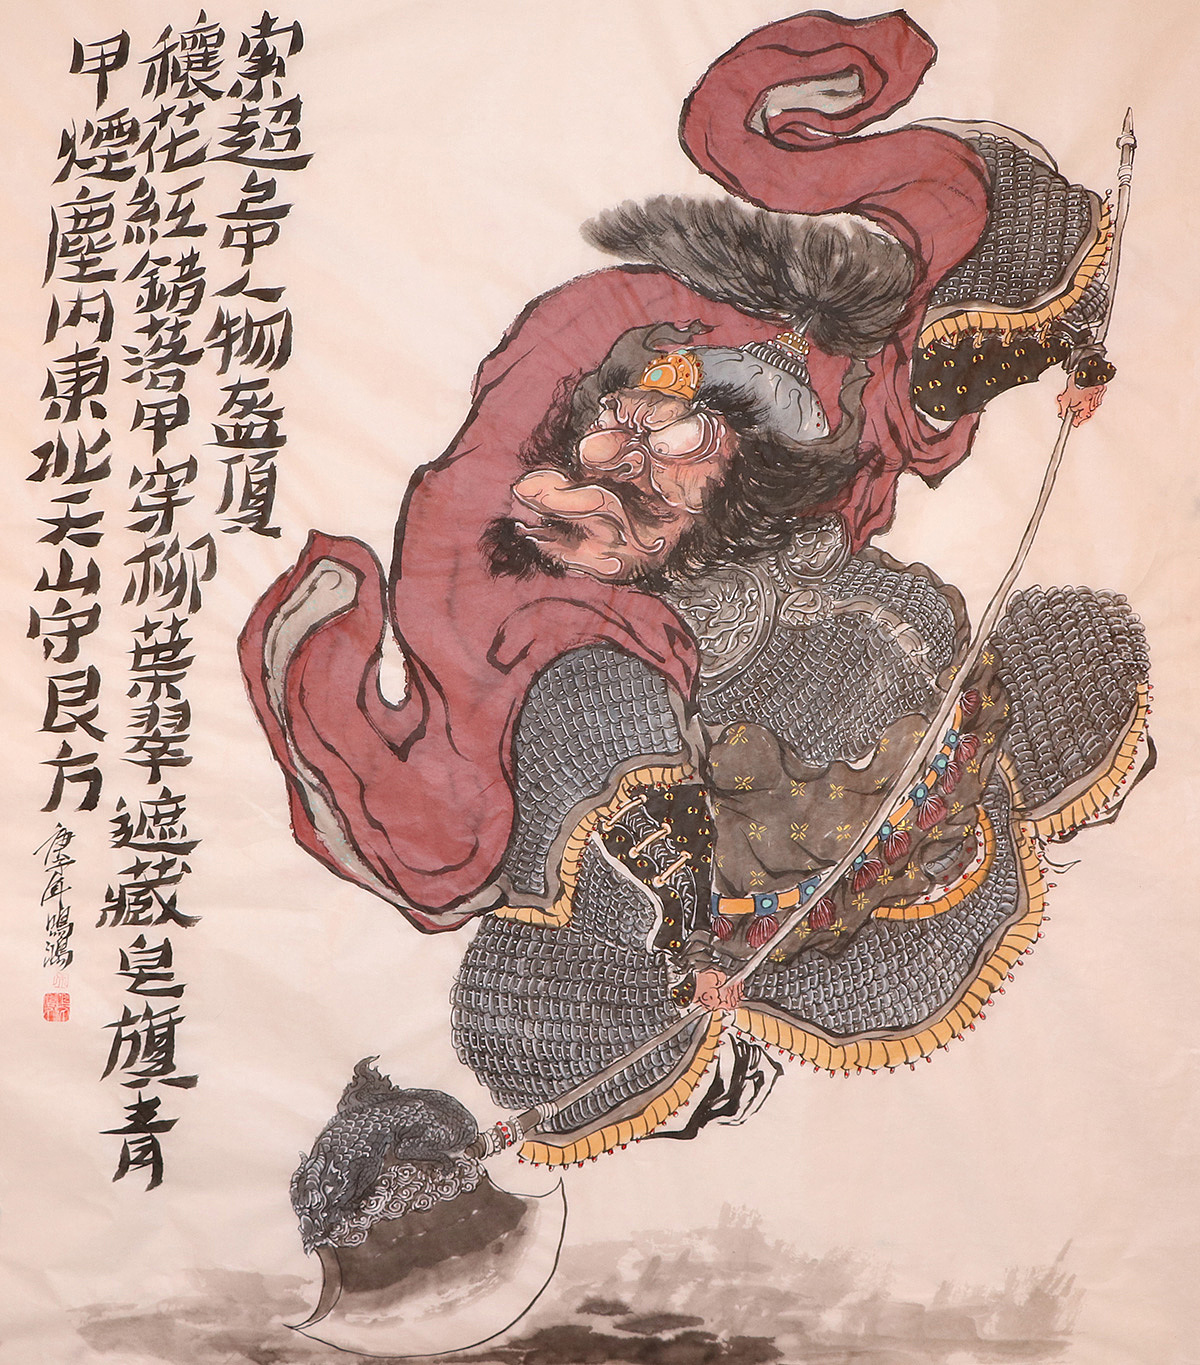 索超人物盔頂
穰花紅錯落甲穿柳葉翠遮藏皂旗青
甲煙塵内東北天山守艮方
庚子年鳴鴻